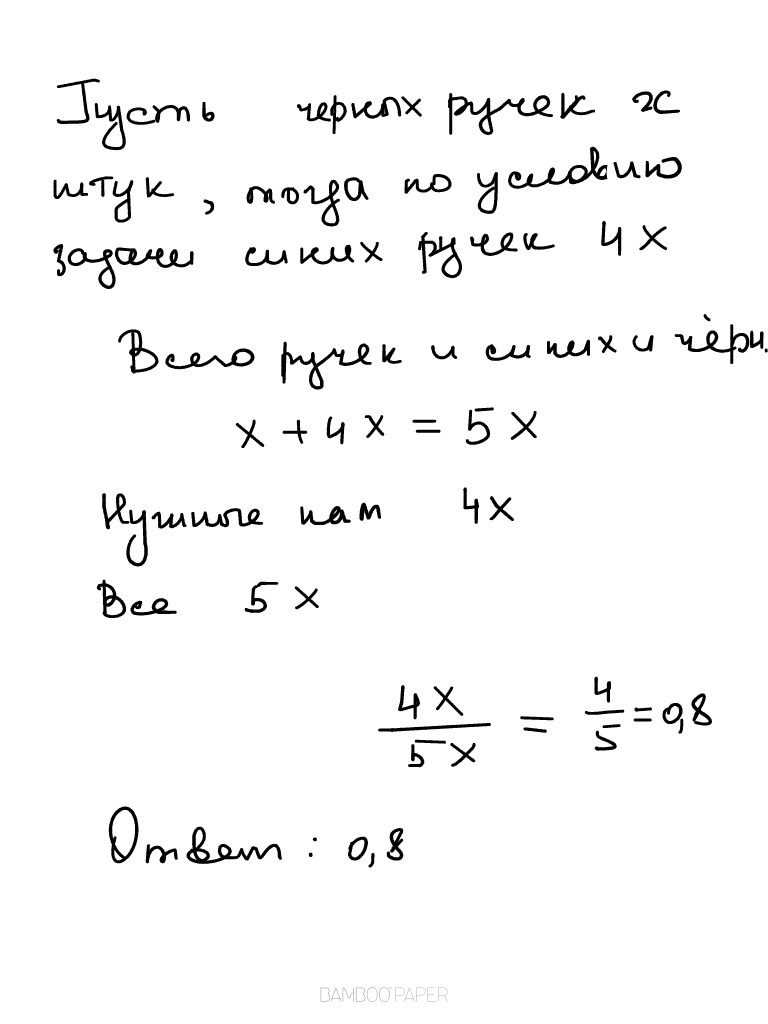 Пусть черных ручек x
штук, тогда по условию
задачи синих ручек 4x
Всего ручек и синих и чёрн.
x + 4x = 5x
Нужные нам 4x
Все 5x
4x/5x = 4/5 = 0,8
Ответ: 0,8
BAMBOO PAPER